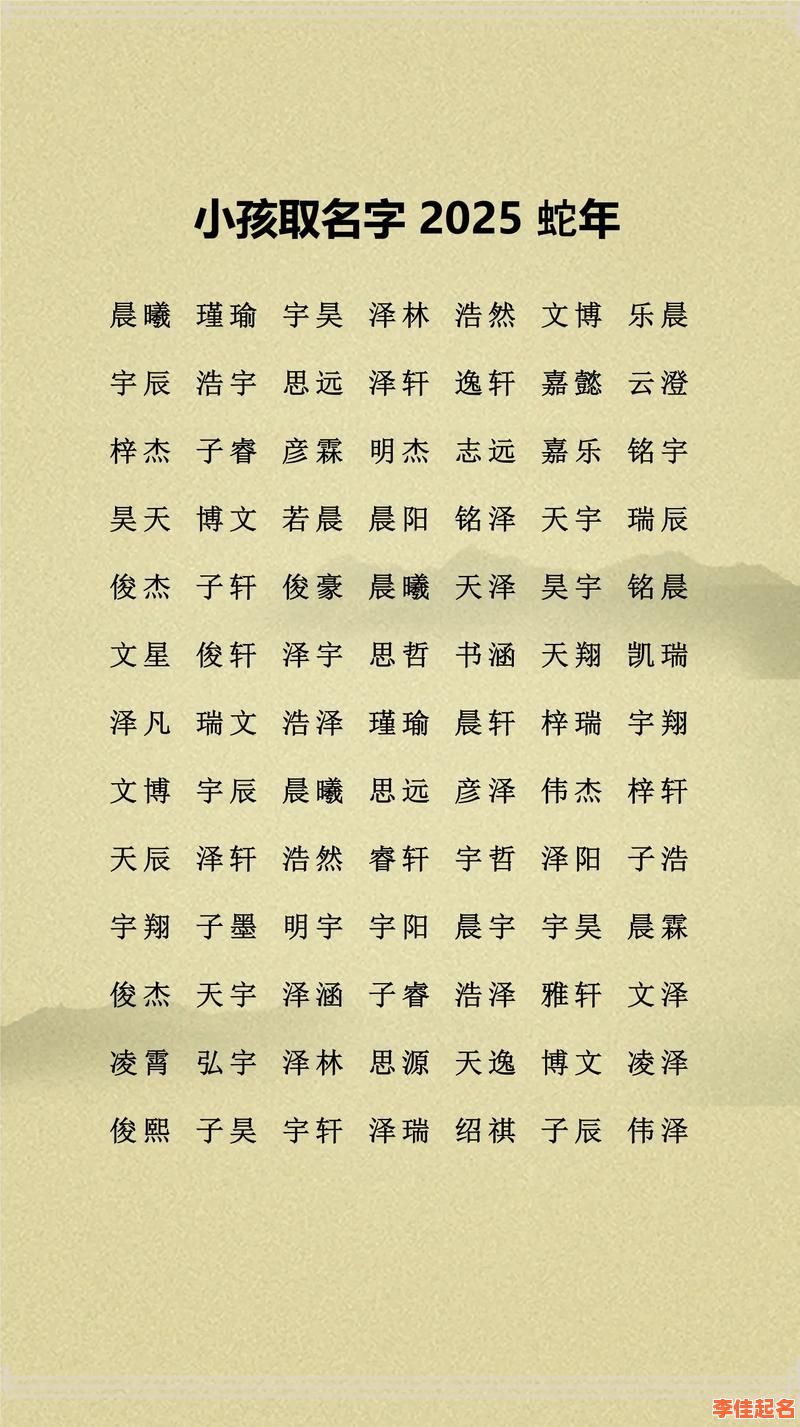 小孩取名字 2025 蛇年
晨曦 瑾瑜 宇昊 泽林 浩然 文博 乐晨
宇辰 浩宇 思远 泽轩 逸轩 嘉懿 云澄
梓杰 子睿 彦霖 明杰 志远 嘉乐 铭宇
昊天 博文 若晨 晨阳 铭泽 天宇 瑞辰
俊杰 子轩 俊豪 晨曦 天泽 昊宇 铭晨
文星 俊轩 泽宇 思哲 书涵 天翔 凯瑞
泽凡 瑞文 浩泽 瑾瑜 晨轩 梓瑞 宇翔
文博 宇辰 晨曦 思远 彦泽 伟杰 梓轩
天辰 泽轩 浩然 睿轩 宇哲 泽阳 子浩
宇翔 子墨 明宇 宇阳 晨宇 宇昊 晨霖
俊杰 天宇 泽涵 子睿 浩泽 雅轩 文泽
凌霄 弘宇 泽林 思源 天逸 博文 凌泽
俊熙 子昊 宇轩 泽瑞 绍祺 子辰 伟泽
李佳起名